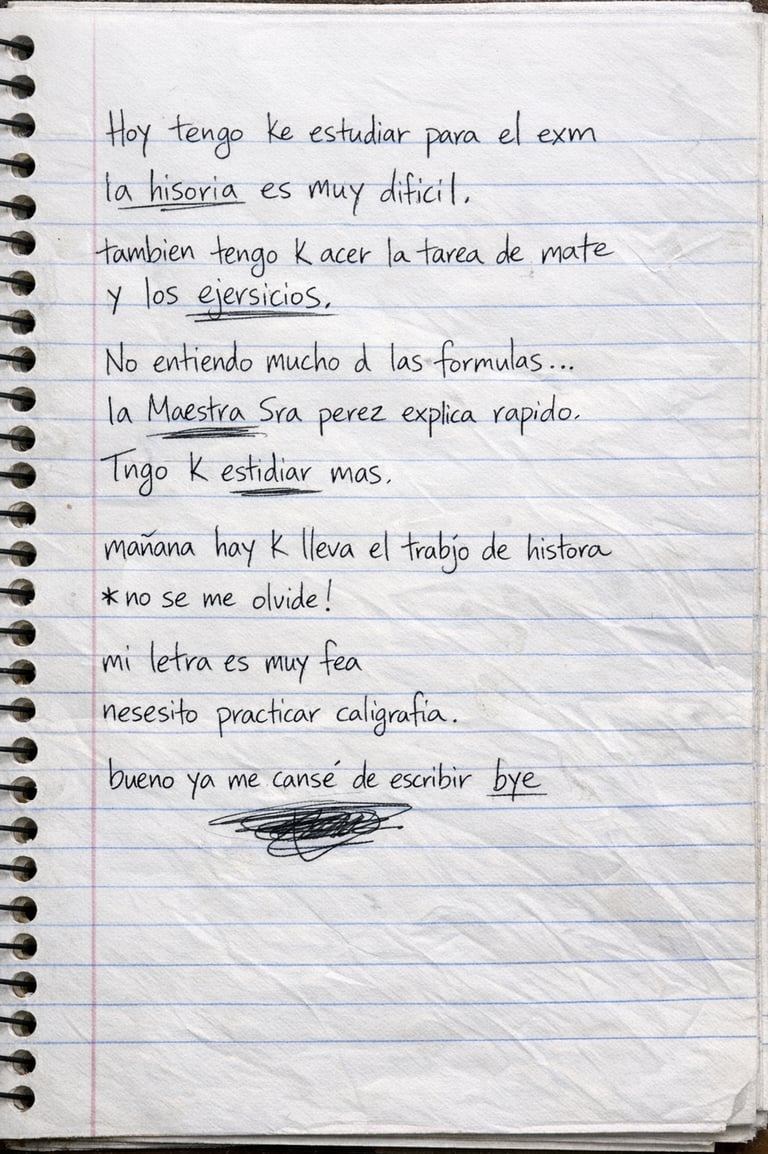 Hoy tengo ke estudiar para el exm
la hisoria es muy dificil.
tambien tengo K acer la tarea de mate
y los ejersicios.
No entiendo mucho d las formulas...
la Maestra Sra perez explica rapido.
Tngo K estidiar mas.
mañana hay K lleva el trabjo de histora
*no se me olvide!
mi letra es muy fea
nesesito practicar caligrafia.
bueno ya me cansé de escribir bye